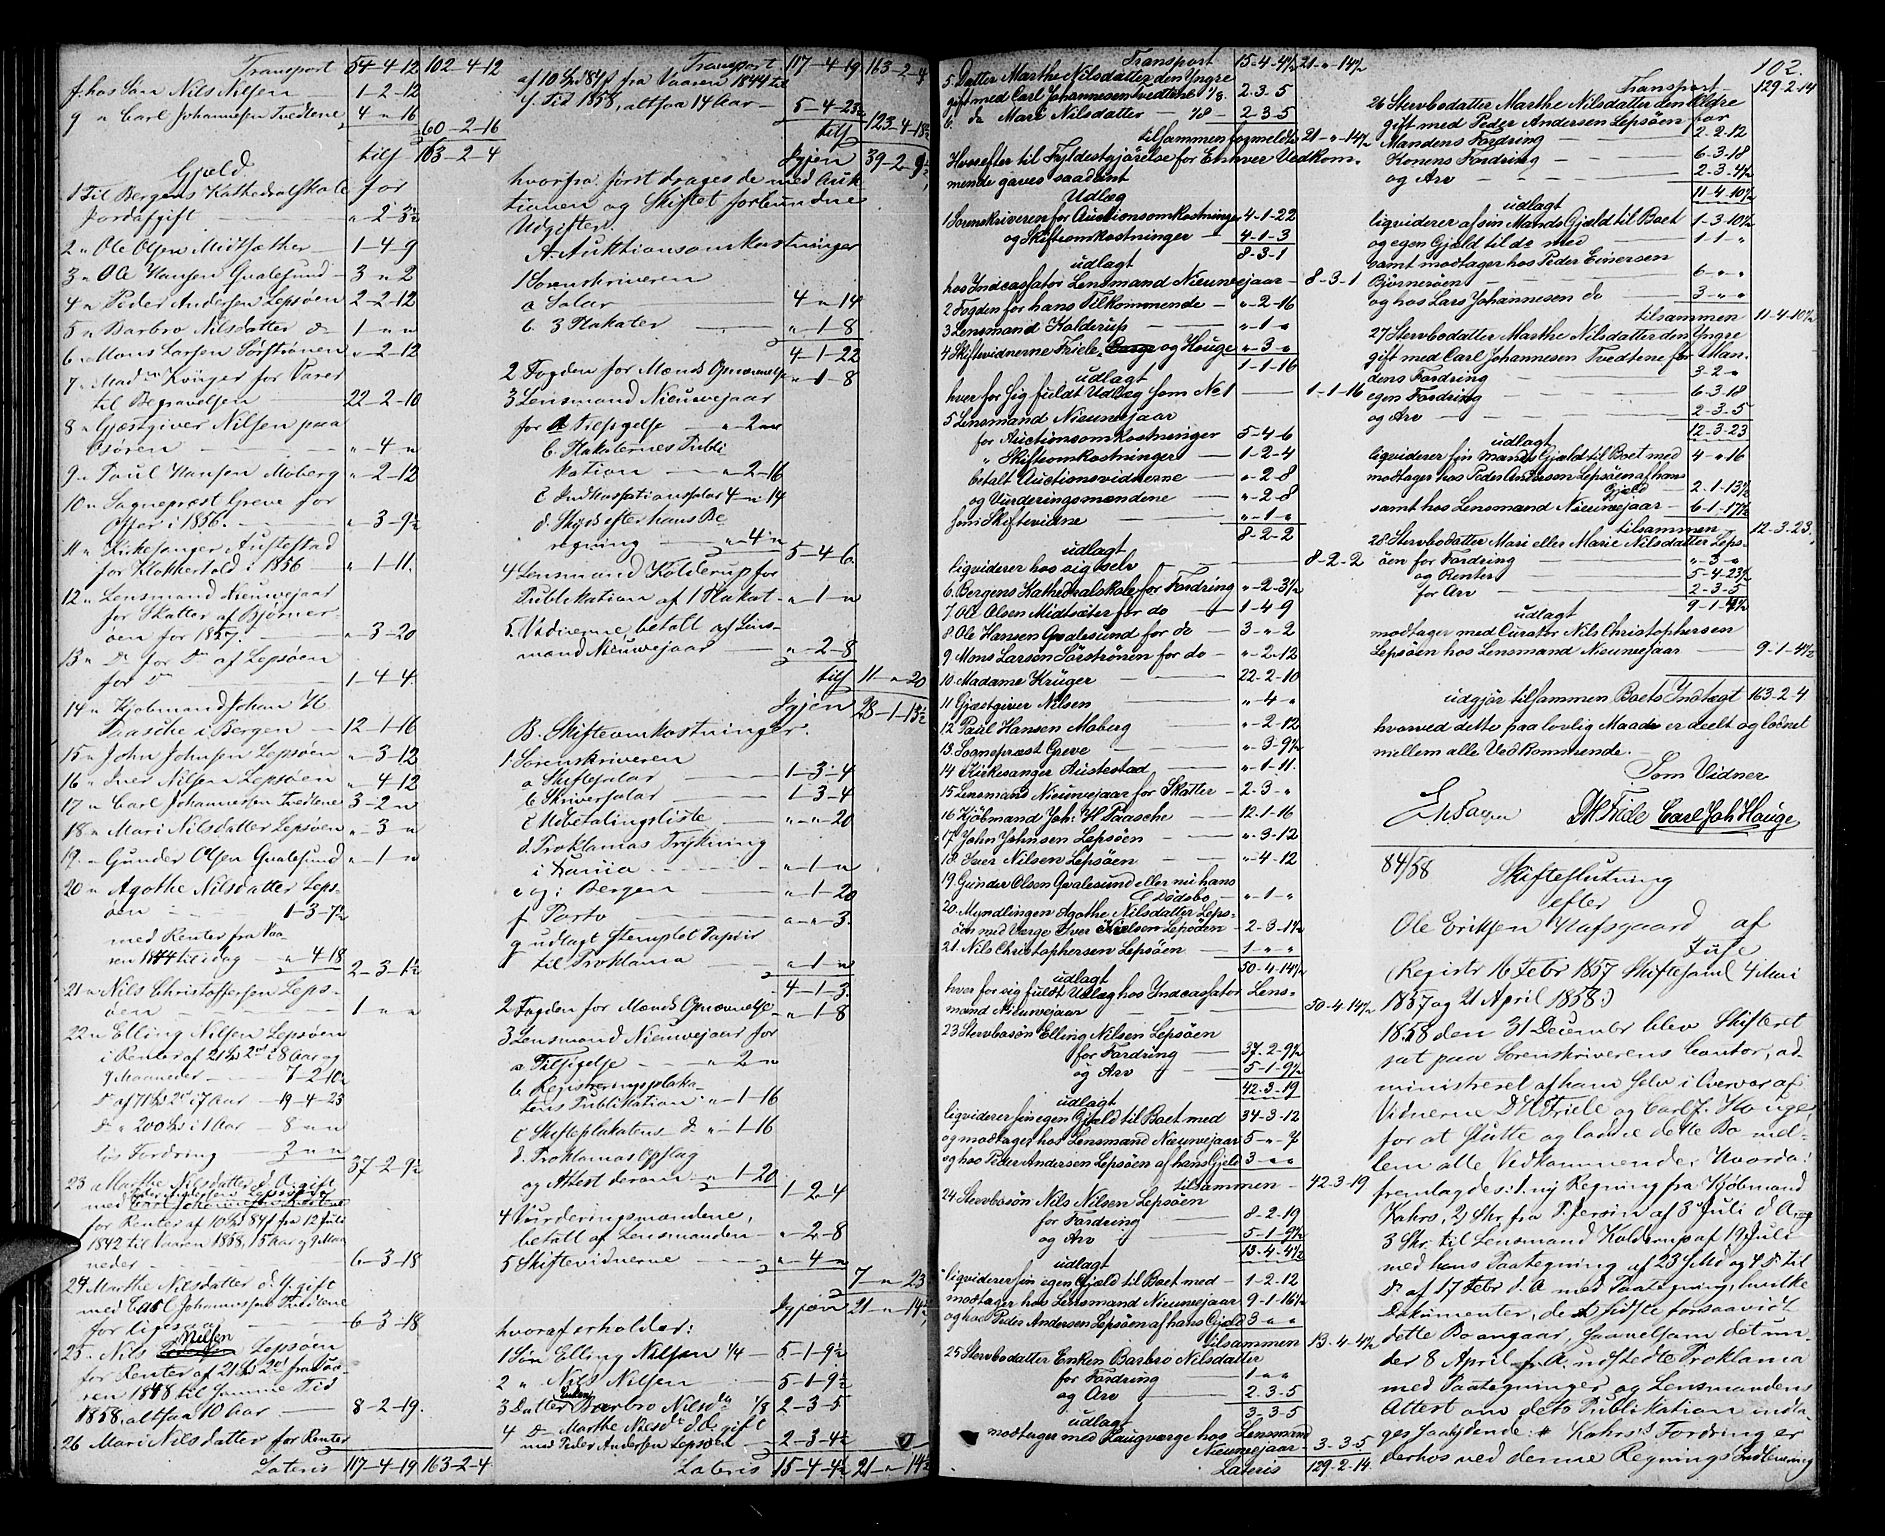 Transport 54-4-12 102-4-12
f. hos Søn Nils Nilsen 1-2-12
g " Carl Johannesen Tvedtene 4 " 16
60-2-16
tils 163-2-4
Gjæld
1 Til Bergens Kathedralskole for
Jordafgift "-2-3½
2 " Ole Olsen Midtsæther 1-4-9
3 " Ole Hansen Qvalesund 3 " 2
4 " Peder Andersen Lepsøen 2-2-12
5 " Barbro Nilsdatter do 1 " "
6 " Mons Larsen Sørstrønen "-2-12
7 " Madme Krüger for Varer
til Begravelsen 22-2-10
8 " Gjæstgiver Nilsen paa
Osøren "-4-"
9 " Paul Hansen Moberg "-2-12
10 " Sognepræst Greve for
Offer i 1856. "-3-9½
11 " Kirkesanger Austestad
for Klokkertold i 1856 "-1-11.
12 " Lensmand Nieuwejaar
for Skatter af Bjørner-
øen for 1857. "-3-20
13 " Do for Do af Lepsøen
for Do 1-4-4.
14 " Kjøbmand Johan H.
Paasche i Bergen 12-1-16
15 " John Johnsen Lepsøen "-3-12
16 " Iver Nilsen Lepsøen "-4-12
17 " Carl Johannesen Tvedtene 3-2-"
18 " Mari Nilsdatter Lepsøen "-3-"
19 " Gunder Olsen Qvalesund "-1-"
20 " Agathe Nilsdatter Leps-
øen 1-3-7½
med Renter fra Vaa-
ren 1844 til idag "-4-18
2-3-1½
21 " Nils Christoffersen Leps-
øen 1 " "
22 " Elling Nilsen Lepsøen
i Renter af 21 Spd 2 ort i 8 Aar og
9 Maaneder 7-2-10½
Do af 71 Spd 2 ort i 7 Aar 19-4-23
Do " 200 Spd i 1 Aar 8 " "
løs Fordring 2 " "
37-2-9½
23 " Marthe Nilsdatter d. Æ. gift
med Peder Andersen Lepsøen
for Renter af 10 Spd 84 s fra 12 Juli
1842 til Vaaren 1858, 15 Aar 9 Maa-
neder 6-3-18
24 Marthe Nilsdatter d. Y. gift
med Carl Johannesen Tvedtene
for ligesaa 6-3-18
25 " Nils Nilsen Lepsøen
for Renter af 21 Spd 2 ort fra Vaa-
ren 1848 til samme Tid
1858, altsaa 10 Aar 8-2-19.
26 Mari Nilsdatter for Renter
Lateris 117-4-19 163-2-4
Transport 117-4-19 163-2-4
af 10 Spd 84 s fra Vaaren 1844 til
s. Tid 1858, altsaa 14 Aar 5-4-23½
tils 123-4-18½
Igjen 39-2-9½
hvorfra først drages de med Auk-
tionen og Skiftet forbundne
Udgifter.
A. Auktionsomkostninger
1 Sorenskriveren
a Salær 4 " 14
b 3 Plakater "-1-8
4-1-22
2 Fogden for Mænds Opnævnelse "-1-8
3 Lensmand Nieuwejaar
for a Tilsigelse "-2-"
b. Plakaternes Publi-
kation "-2-16
c Indkassationssalær 4-"-14
d. Skyds efter hans Be-
regning "-4-"
5-4-6.
4 Lensmand Kolderup for
Publikation af 1 Plakat "-1-"
5. Vidnerne, betalt af Lens-
mand Nieuwejaar "-2-8
tils 11 " 20
Igjen 28-1-13½
B. Skifteomkostninger.
1 Sorenskriveren
a Skiftesalær 1-3-4
b Skriversalær 1-3-4
c Udbetalingsliste "-"-20
d. Proklamas Trykning
i Xania "-1-"
e og i Bergen "-1-20
f Porto "-"-3.
g udlagt stemplet Papiir
til Proklama "-1-"
4-1-3.
2 Fogden for Mænds Opnævnelse "-1-8
3 Lensmand Nieuwejaar for
a Tilsigelse "-2-"
b Registreringsplaka-
tens Publikation "-1-16
c Skifteplakatens Do "-1-16
d. Proklamas Opslag
og Attest derom "-1-20
1-2-4
4 Vurderingsmændene,
betalt af Lensmanden "-2-8
5 Skiftevidnerne "-4-"
7-"-23
Igjen 21-"-14½
hvoraf erholder:
1 Søn Elling Nilsen ¼ 5-1-9½
2 " Nils Nilsen 5-1-9½
3 Datter Enken Barbro Nilsdr 1/8 2-3-5
4 Do Marthe Nilsdr d. Æ. gift
med Peder Andersen Lepsøen 2-3-4½
Lateris 15-4-4½ 21-"-14½
Transport 15-4-4½ 21-"-14½
5 Datter Marthe Nilsdatter den Yngre
gift med Carl Johannesen Tvedtene 1/8. 2-3-5
6. do Mari Nilsdatter 1/8 2-3-5
tilsammen formeldte 21-"-14½
Herefter til Fyldestgjørelse for Enhver Vedkom-
mende gaves saadant
Udlæg
1 Sorenskriveren for Auctionsomkostninger 4-1-22
og Skifteomkostninger 4-1-3
8-3-1
udlagt
hos Indcassator Lensmand Nieuwejaar 8-3-1
2 Fogden for hans Tilkommende "-2-16
3 Lensmand Kolderup "-1-"
4 Skiftevidnerne Friele og Houge "-3-"
1-1-16
udlagt
hver for sig fuldt Udlæg som No 1 1-1-16
5 Lensmand Nieuwejaar
for Auctionsomkostninger 5-4-6
" Skifteomkostninger 1-2-4
betalt Auctionsvidnerne "-2-8
og Vurderingsmændene "-2-8
som Skiftevidne "-1-"
8-2-2
udlagt
liqviderer hos sig selv 8-2-2
6. Bergens Kathedralskole for Fordring "-2-3½
7 Ole Olsen Midtsæter for do 1-4-9
8 Ole Hansen Qvalesund for do 3-"-2
9 Mons Larsen Sørstrønen for do "-2-12
10. Madame Krüger 22-2-10
11 Gjæstgiver Nilsen "-4-"
12 Paul Hansen Moberg "-2-12
13. Sognepræst Greve "-3-9½
14 Kirkesanger Austestad "-1-11.
15 Lensmand Nieuwejaar for Skatter 2-3-"
16 Kjöbmand Joh: H Paasche 12-1-16
17 John Johnsen Lepsøen "-3-12
18 Iver Nilsen Lepsøen "-4-12
19 Gunder Olsen Qvalesund eller nu hans
Dødsbo "-1-"
20 Myndlingen Agathe Nilsdatter Leps-
øen med Værge Iver Nielsen Lepsöen 2-3-1½
21 Nils Christophersen Lepsøen 1-"-"
50-4-14½
udlagt
hver for sig fuldt Udlæg hos Indcassator Lens-
mand Nieuwejaar 50-4-14½
23 Stervbosøn Elling Nilsen Lepsøen
for Fordring 37-2-9½
og Arv 5-1-9½
42-3-19
udlagt
liqviderer sin egen Gjæld til Boet med 34-3-12
og modtager hos Lensmand Nieuwejaar 5-"-7
og hos Peder Andersen Lepsøen af hans Gjæld 3-"-"
tilsammen 42-3-19
24 Stervbosøn Nils Nilsen Lepsøen
for Fordring 8-2-19
og Arv 5-1-9½
13-4-4½
udlagt
liqviderer sin egen Gjæld til Boet med 1-2-12
modtager hos Lensmand Nieuwejaar 9-1-16½
og hos Peder Andersen Lepsøen af hans Gjæld 3-"-"
tilsammen 13-4-4½
25 Stervbodatter Enken Barbro Nilsdatter
for Fordring 1-"-"
og Arv 2-3-5
3-3-5
udlagt
modtager med Laugværge hos Lensmand
Nieuwejaar 3-3-5
Lateris 129-2-14
102.
Transport 129-2-14
26 Stervbodatter Marthe Nilsdatter den Ældre
gift med Peder Andersen Lepsøen for
Mandens Fordring 2-2-12
Konens Fordring 6-3-18
og Arv 2-3-4½
11-4-10½
udlagt
liqviderer af sin Mands Gjæld til Boet 1-3-10½
og egen Gjæld til do med 1-1-"
samt modtager hos Peder Einersen
Bjørnerøen 6-"-"
og hos Lars Johannesen do 3-"-"
tilsammen 11-4-10½
27 Stervbodatter Marthe Nilsdatter den Yngre
gift med Carl Johannesen Tvedtene for Man-
dens Fordring 3-2-"
egen Fordring 6-3-18
og Arv 2-3-5
12-3-23
udlagt
liqviderer sin Mands Gjæld til Boet med 4-"-16
modtager hos Peder Andersen Lepsøen af hans
Gjæld 2-1-13½
samt hos Lensmand Nieuwejaar 6-1-17½
tilsammen 12-3-23.
28 Stervbodatter Mari eller Marie Nilsdatter Leps-
øen for Fordring "-3-"
og Renter 5-4-23½
for Arv 2-3-5
9-1-4½
udlagt
modtager med Curator Nils Christophersen
Lepsøen hos Lensmand Nieuwejaar 9-1-4½
udgjør tilsammen Boets Indtægt 163-2-4
hvorved dette paa lovlig Maade er deelt og loddet
mellem alle Vedkommende.
Som Vidner
DH Friele Carl Joh Houge
84/58 Skifteslutning
efter
Ole Eriksen Hafsgaard af
Fuse
(Registr 16 Febr 1857 Skiftesaml 4 Mai
1857 og 21 April 1858.)
1858 den 31 December blev Skifteret
sat paa Sorenskriverens Contor, ad-
ministreret af ham selv i Overvær af
Vidnerne D H Friele og Carl J. Houge,
for at slutte og lodde dette Bo mel-
lem alle Vedkommende. Hvorda:
fremlagdes: 1. ny Regning fra Kjøbmand
Kahrs, 2) Skr. fra P. Jersin af 3 Juli d A og
3 Skr. til Lensmand Kolderup af 19 Juli
med hans Paategning af 23 s Md og 4 Do til
Do af 17 Febr d. A med Paategning, hvilke
Dokumenter, de sidste forsaavidt
dette Bo angaar, saavelsom det un-
der 8 April f. A. udstedte Proklama
med Paategninger og Lensmandens
Attest om dets Publikation indta-
ges saalydende: Kahrs's Fordring er
derhos ved denne Regnings Indlevering